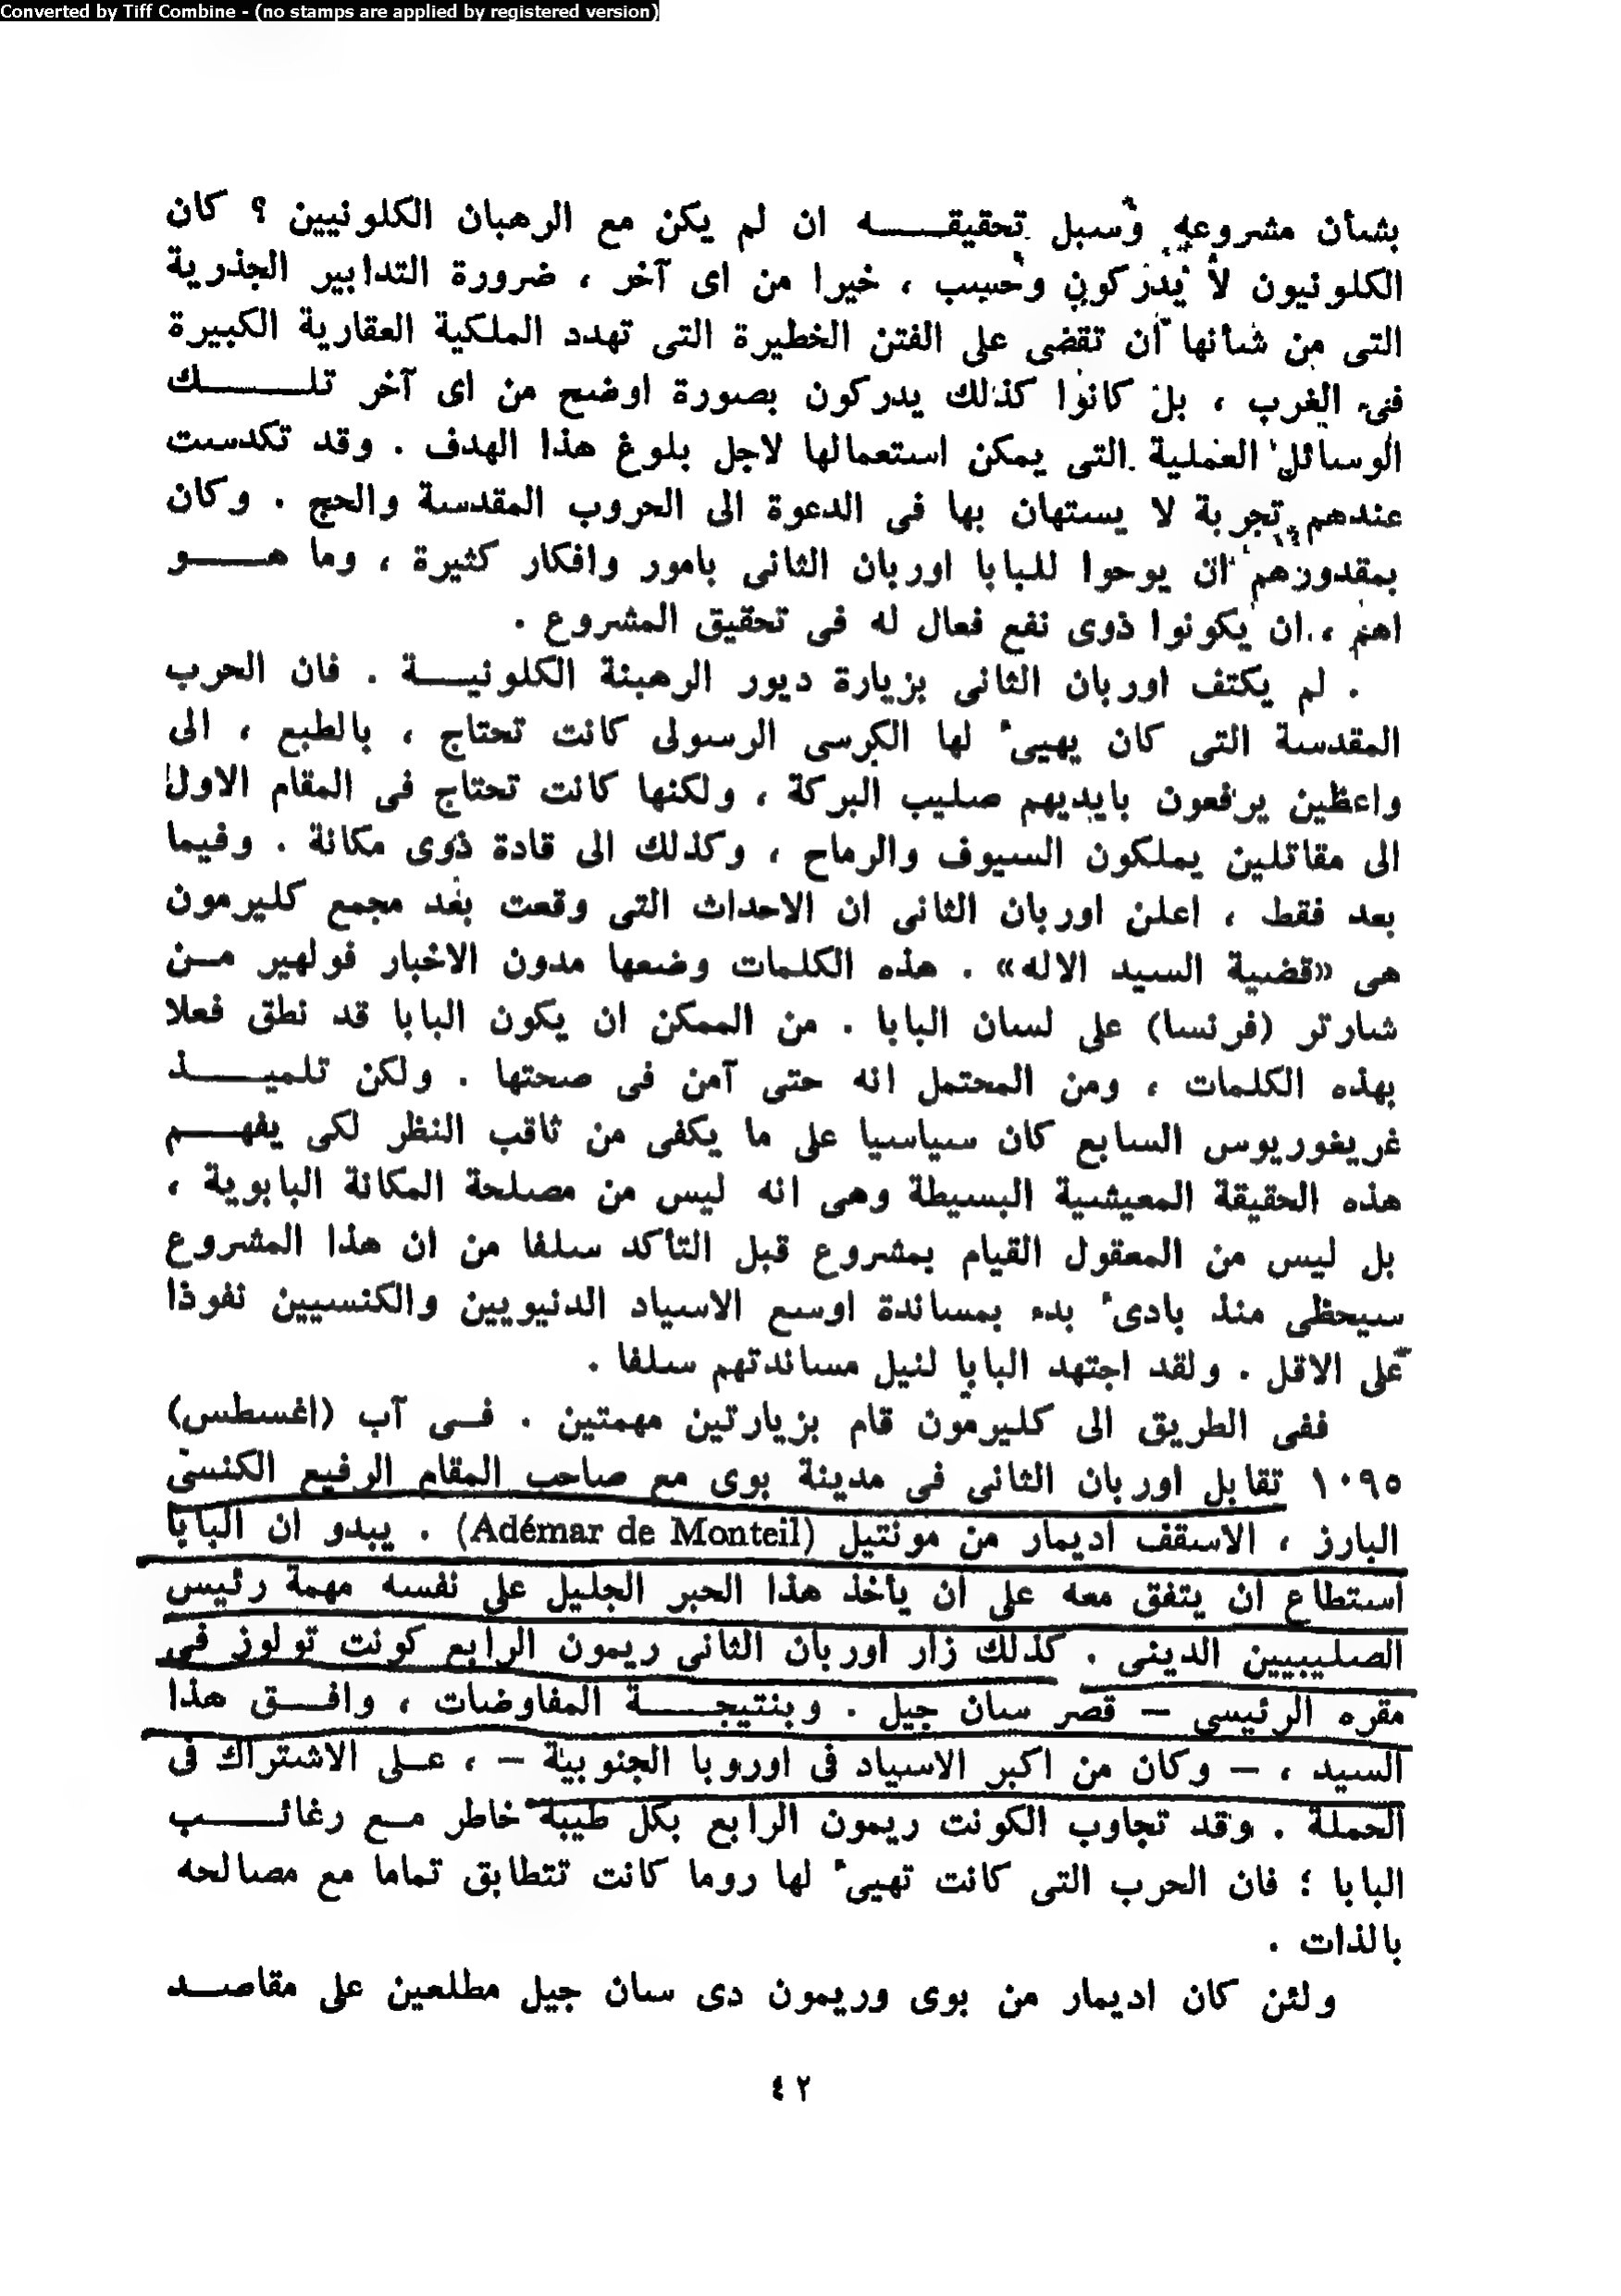 Converted by Tiff Combine - (no stamps are applied by registered version)
بشأن مشروعه وسبل تحقيقه ان لم يكن مع الرهبان الكلونيين ؟ كان
الكلونيون لا يدركون وحسب ، خيرا من اى آخر ، ضرورة التدابير الجذرية
التى من شأنها ان تقضى على الفتن الخطيرة التى تهدد الملكية العقارية الكبيرة
فى الغرب ، بل كانوا كذلك يدركون بصورة اوضح من اى آخر تلك
الوسائل العملية التى يمكن استعمالها لاجل بلوغ هذا الهدف . وقد تكدست
عندهم تجربة لا يستهان بها فى الدعوة الى الحروب المقدسة والحج . وكان
بمقدورهم ان يوحوا للبابا اوربان الثانى بامور وافكار كثيرة ، وما هو
اهم ، ان يكونوا ذوى نفع فعال له فى تحقيق المشروع .
. لم يكتف اوربان الثانى بزيارة ديور الرهبنة الكلونية . فان الحرب
المقدسة التى كان يهيىء لها الكرسى الرسولى كانت تحتاج ، بالطبع ، الى
واعظين يرفعون بايديهم صليب البركة ، ولكنها كانت تحتاج فى المقام الاول
الى مقاتلين يملكون السيوف والرماح ، وكذلك الى قادة ذوى مكانة . وفيما
بعد فقط ، اعلن اوربان الثانى ان الاحداث التى وقعت بعد مجمع كليرمون
هى «قضية السيد الاله» . هذه الكلمات وضعها مدون الاخبار فولهير من
شارتر (فرنسا) على لسان البابا . من الممكن ان يكون البابا قد نطق فعلا
بهذه الكلمات ، ومن المحتمل انه حتى آمن فى صحتها . ولكن تلميذ
غريغوريوس السابع كان سياسيا على ما يكفى من ثاقب النظر لكى يفهم
هذه الحقيقة المعيشية البسيطة وهى انه ليس من مصلحة المكانة البابوية ،
بل ليس من المعقول القيام بمشروع قبل التأكد سلفا من ان هذا المشروع
سيحظى منذ بادىء بدء بمساندة اوسع الاسياد الدنيويين والكنسيين نفوذا
على الاقل . ولقد اجتهد البابا لنيل مساندتهم سلفا .
ففى الطريق الى كليرمون قام بزيارتين مهمتين . فى آب (اغسطس)
١٠٩٥ تقابل اوربان الثانى فى مدينة بوى مع صاحب المقام الرفيع الكنسى
البارز ، الاسقف اديمار من مونتيل (Adémar de Monteil) . يبدو ان البابا
استطاع ان يتفق معه على ان يأخذ هذا الحبر الجليل على نفسه مهمة رئيس
الصليبيين الدينى . كذلك زار اوربان الثانى ريمون الرابع كونت تولوز فى
مقره الرئيسى – قصر سان جيل . وبنتيجة المفاوضات ، وافق هذا
السيد ، – وكان من اكبر الاسياد فى اوروبا الجنوبية – ، على الاشتراك فى
الحملة . وقد تجاوب الكونت ريمون الرابع بكل طيبة خاطر مع رغائب
البابا ؛ فان الحرب التى كانت تهيىء لها روما كانت تتطابق تماما مع مصالحه
بالذات .
ولئن كان اديمار من بوى وريمون دى سان جيل مطلعين على مقاصد
٤٢